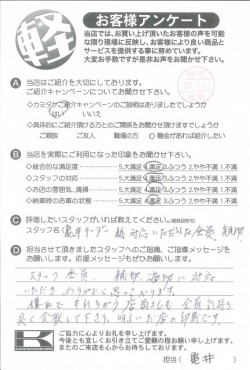 軽
お客様アンケート
当店では、お買い上げ頂いたお客様の声を可能
な限り現場に反映し、お客様により良い商品と
サービスを提供する事に努めています。
大変お手数ですが是非お声をお聞かせ下さい。
A 当店はご紹介を大切にしております。
ご紹介キャンペーンについてお聞かせ下さい。
◇カミタがご紹介キャンペーンのご説明はありましたでしょうか
はい いいえ
◇具体的にご紹介頂ける方とのご関係をお聞かせ頂けますでしょうか
ご親族 ご友人 職場の方 ○機会があれば紹介したい
B 当店を実際にご利用になった印象をお聞かせ下さい。
◇総合的な満足度 5.大満足 4.満足 3.ふつう 2.やや不満 1.不満
◇スタッフの対応 5.大満足 4.満足 3.ふつう 2.やや不満 1.不満
◇お店の雰囲気、清掃 5.大満足 4.満足 3.ふつう 2.やや不満 1.不満
◇納車時のお車の状態 5.大満足 4.満足 3.ふつう 2.やや不満 1.不満
C 評価したいスタッフがいれば教えてください。(複数回答可)
スタッフ名 亀井リーダー 対応いただいた全員
D 担当させて頂きましたスタッフへのご指摘、ご指導メッセージを
お願いします。応援メッセージもぜひお願いします。
スタッフ全員 親切 対応
いただき ありがとう
良く 下さり、明るいお店の印象です。
K
ご協力に心よりお礼を申し上げます。
今後とも宜しくお引き立てご愛顧の程お願い申し上げます。
またのご来店を心からお待ちしております。
担当( 亀井 )